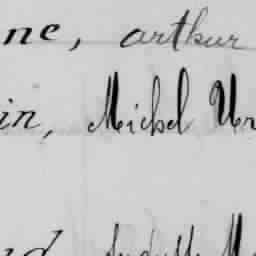 ne, arthur
in, Michel Ur